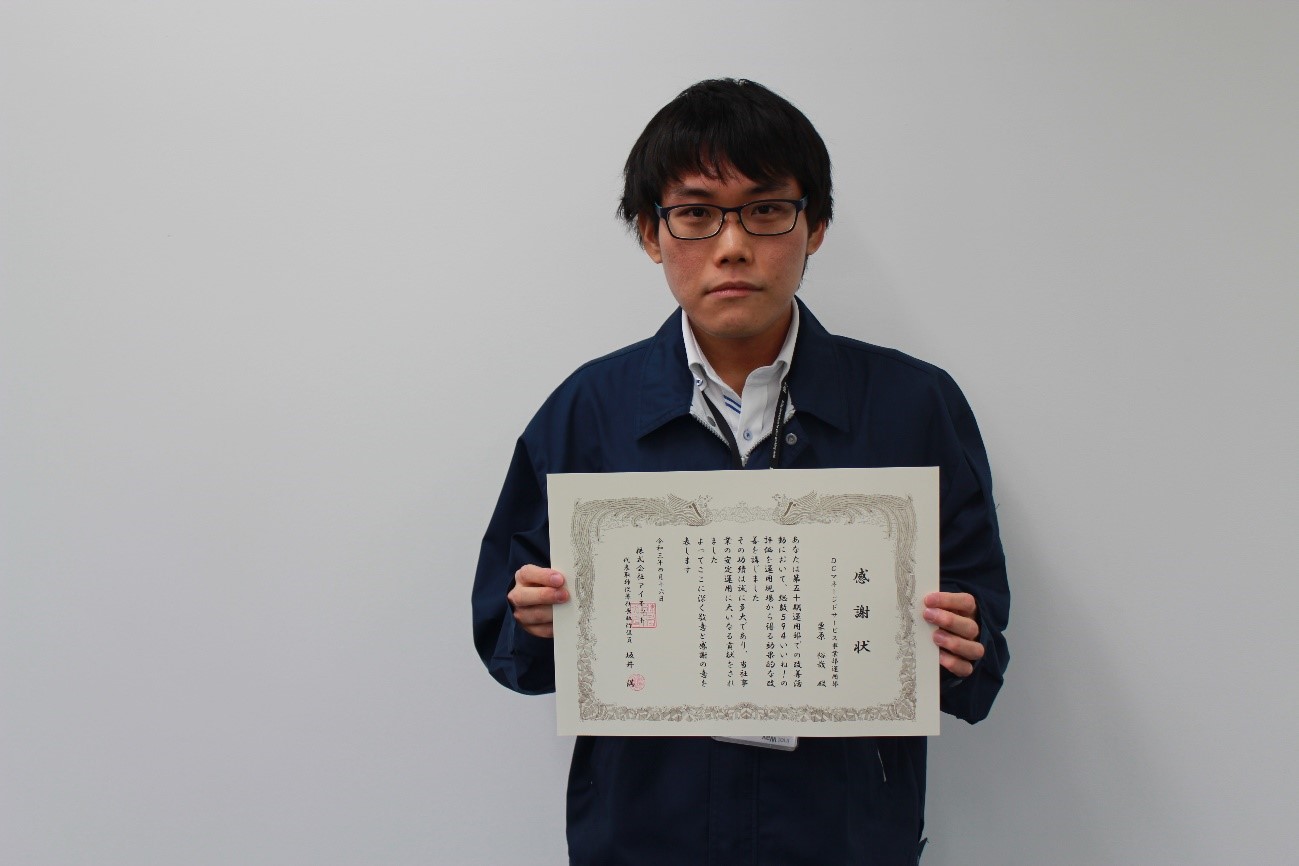 感謝状
DCマネージドサービス事業部運用部
栗原 裕哉 殿
あなたは第五十期運用部での改善活
動において、総数594いいね！の
評価を運用現場から得る効果的な改
善を講じました
その功績は誠に多大であり、当社事
業の安定運用に大いなる貢献をされ
ました
よってここに深く敬意と感謝の意を
表します
令和三年四月十六日
株式会社アイネット
代表取締役兼社長執行役員 坂井 満